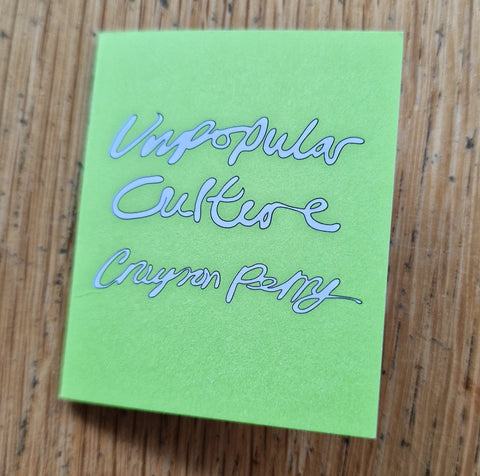 Unpopular
Culture
Grayson Perry